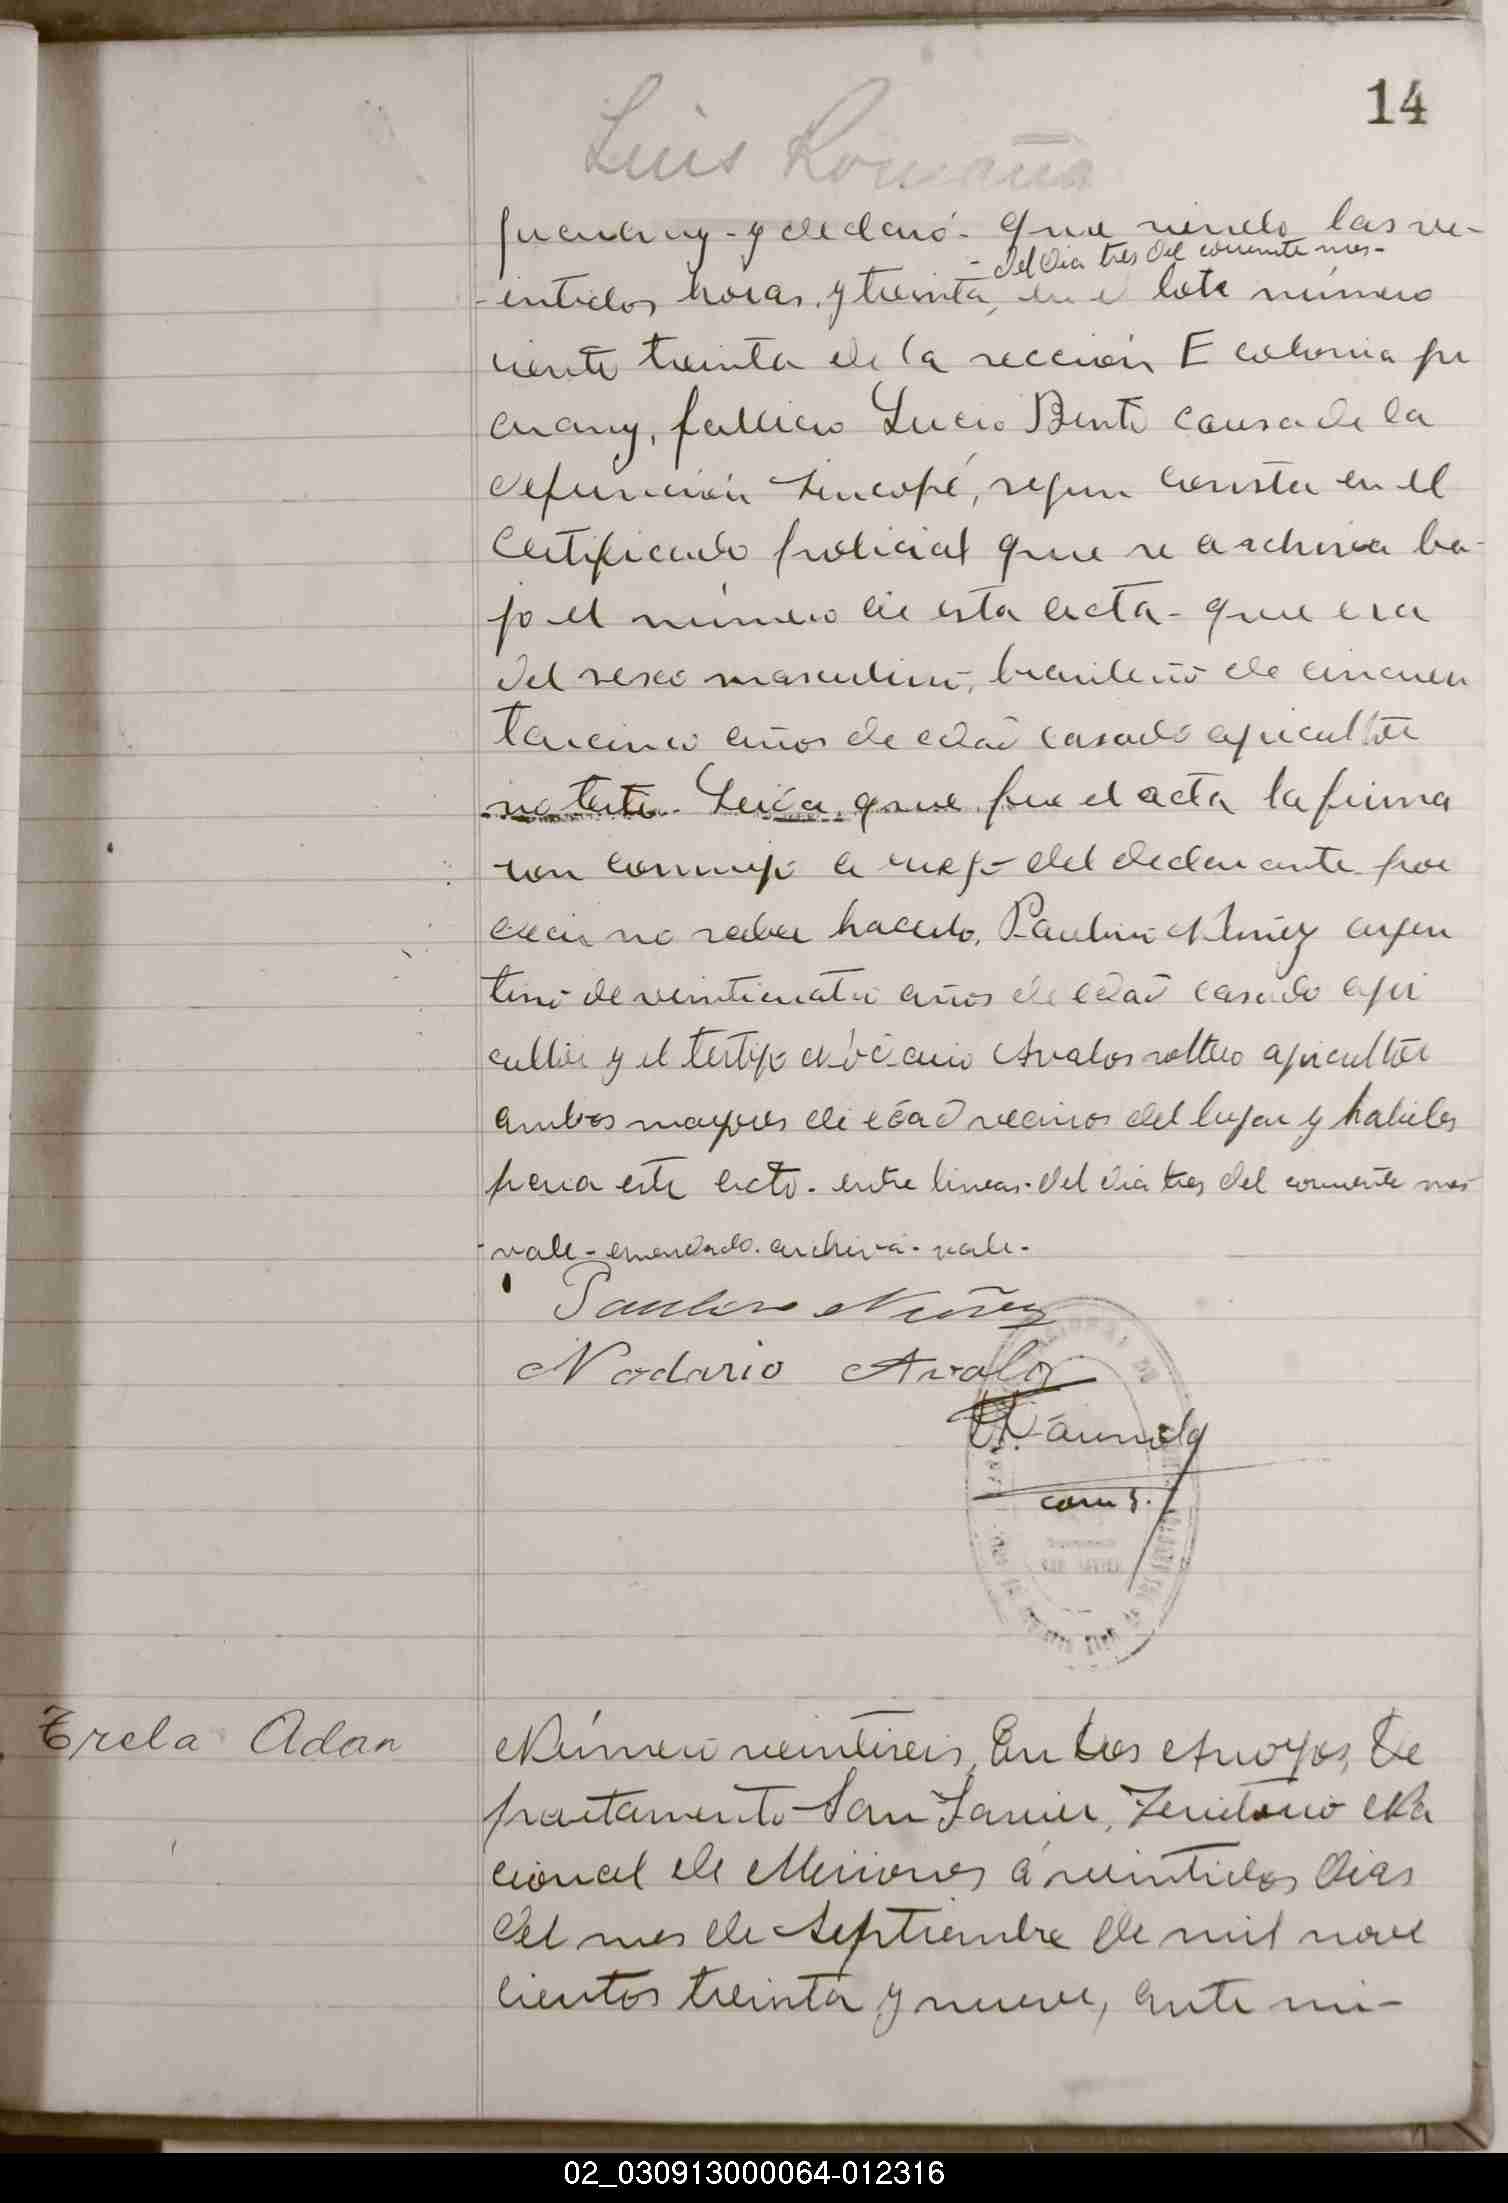 14
Luis Romaña
guarany - y declaró - que siendo las ve-
- del dia tres del corriente mes -
- intidos horas, y treinta, en el lote número
ciento treinta de la sección E colonia gu
arany, fallecio Lucio Bento causa de la
defunción Sincopé, segun consta en el
certificado policial que se archiva ba-
jo el número de esta acta - que era
del sexo masculino, brasileño de cincuen
tacinco años de edad casado agricultor
no testó. Leida que fue el acta la firma
ron conmigo a ruego del declarante por
decir no saber hacerlo, Paulino Nuñez argen
tino de veinticuatro años de edad casado agri
cultor y el testigo Nodario Avalos soltero agricultor
ambos mayores de edad vecinos del lugar y habiles
para este acto. entre lineas - del dia tres del corriente mes
- vale - enmendado. archiva - vale -
Paulino Nuñez
Nodario Avalos
SAN JAVIER
Trela Adan
Número veintiseis, En Tres Arroyos, De
partamento San Javier, Territorio Na
cional de Misiones á veintidos dias
del mes de Septiembre de mil nove
cientos treinta y nueve, ante mi -
02_030913000064-012316